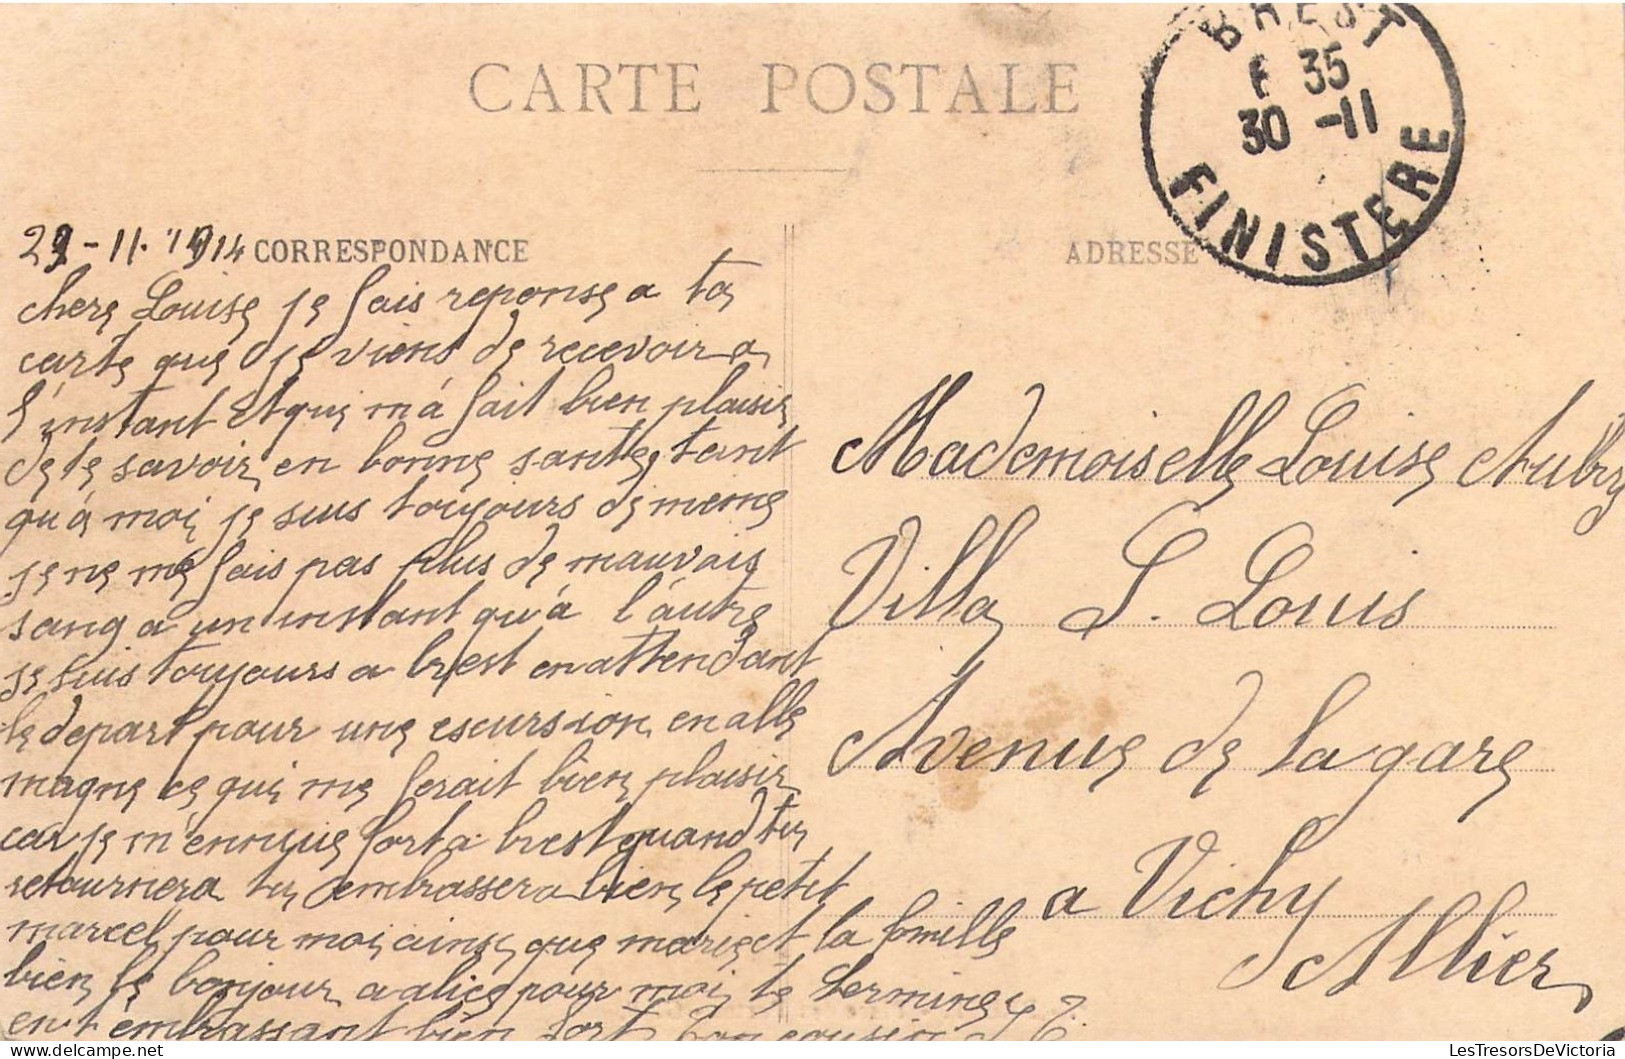 CARTE POSTALE
BREST
6 35
30 -11
FINISTERE
29-11.1914 CORRESPONDANCE
ADRESSE
chere Louise je fais reponse a ta
carte que je viens de recevoir a
l'instant Et qui m'a fait bien plaisir
de te savoir en bonne sante, tant
qu'a moi je suis toujours de meme
je ne me fais pas plus de mauvais
sang a un instant qu'a l'autre
je suis toujours a brest en attendant
le depart pour une escursion en alle
magne ce qui me ferait bien plaisir
car je m'ennuie fort a brest quand tu
retournera tu embrassera bien le petit
marcel pour moi ainsi que marie et la famille
bien le bonjour a alice pour moi je termine
en t'embrassant bien fort ton cousin
Mademoiselle Louise Aubry
Villa S. Louis
Avenue de la gare
a Vichy
Allier
LesTresorsDeVictoria